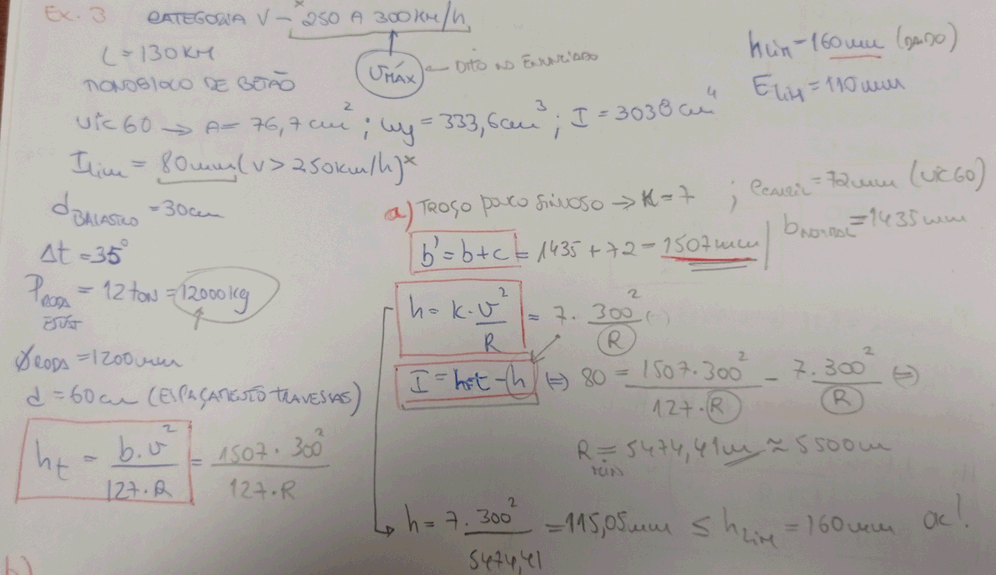 Ex. 3 CATEGORIA V - * 250 A 300 KM/h
L = 130 KM
Vmáx ← DITO NO ENUNCIADO
hlim = 160mm (DADO)
Elim = 110mm
MONOBLOCO DE BETÃO
UIC60 → A = 76,7cm²; wy = 333,6cm³; I = 3038cm⁴
Ilim = 80mm (V > 250km/h)*
dBALASTRO = 30cm
Δt = 35°
PRODA ESTÁT = 12 ton = 12000kg
ØRODA = 1200mm
d = 60cm (ESPAÇAMENTO TRAVESSAS)
ht = b.v² / 127.R = 1507.300² / 127.R
a) TROÇO pouco sinuoso → K = 7 ; ecarril = 72mm (UIC60)
bNORMAL = 1435mm
b' = b+c = 1435 + 72 = 1507mm
h = K.v² / R = 7.300² / R (-)
I = ht - h (⇔) 80 = 1507.300² / 127.R - 7.300² / R (⇔)
Rmín = 5474,41m ≈ 5500m
h = 7.300² / 5474,41 = 115,05mm ≤ hlim = 160mm OK!
b)